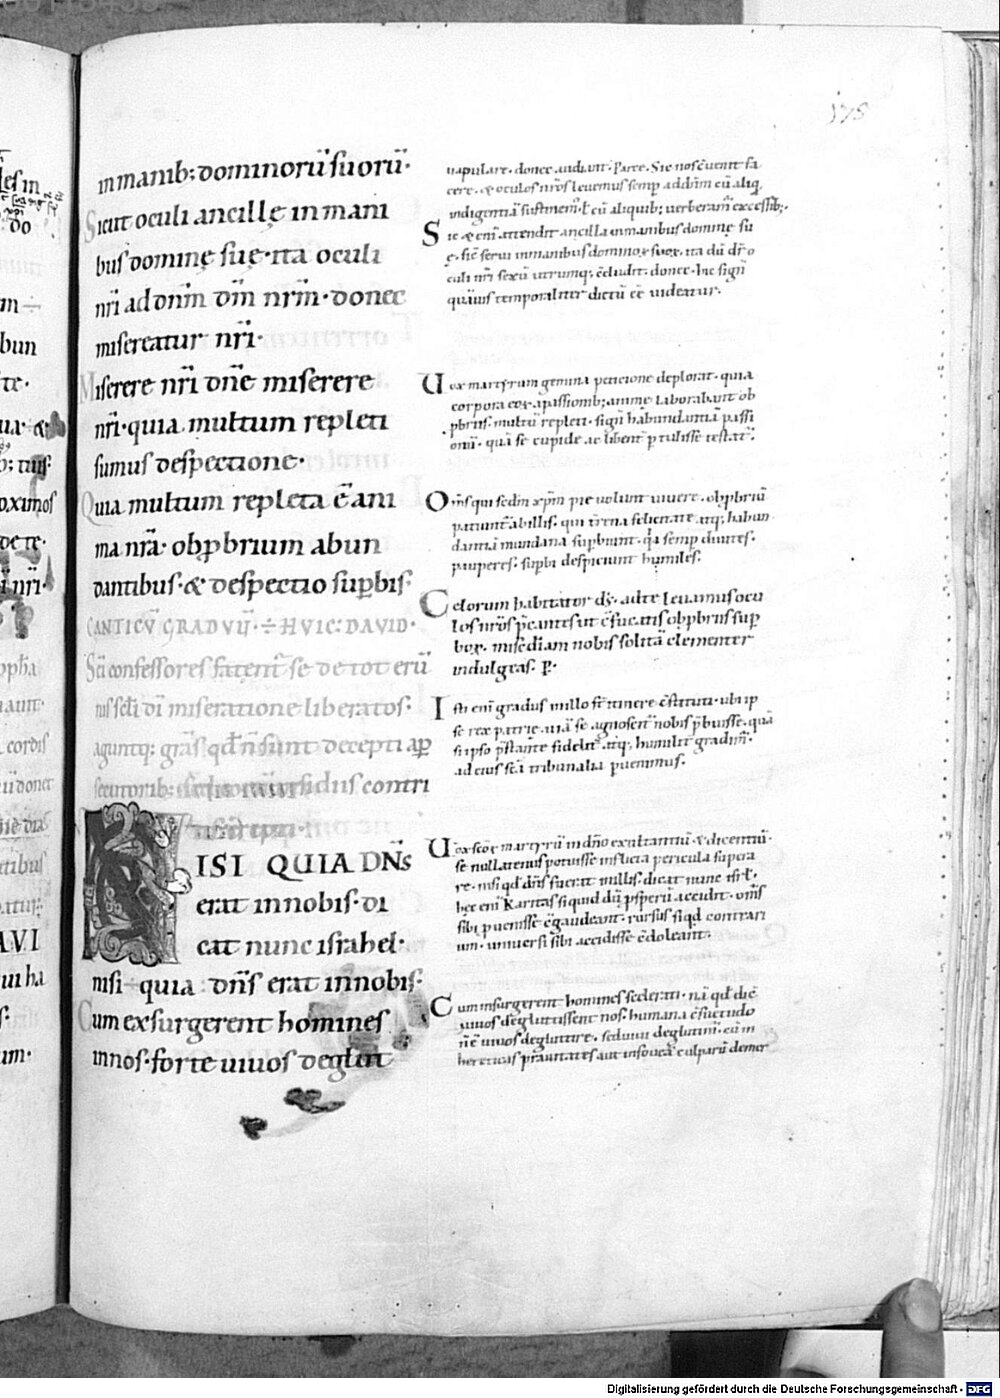 178
in manib; dominorū suorū·
Sicut oculi ancillę in mani
bus dominę suę· ita oculi
nr̄i ad dnm̄ dm̄ nrm̄· donec
misereatur nr̄i·
Miserere nr̄i dn̄e miserere
nr̄i· quia multum repleti
sumus despectione·
Quia multum repleta ē ani
ma nr̄a· obp̄brium abun
dantibus· & despectio supbis·
CANTICV̄ GRADVV̄· ÷ HVIC: DAVID·
Sc̄i confessores fatent̄ se de tot erū
nis sc̄li dī miseratione liberatos·
aguntq: grās qd̄ n̄ sunt decepti a p
secutorib:
sidus contri
NISI QUIA DN̄S
erat in nobis· di
cat nunc israhel·
nisi quia dn̄s erat in nobis·
Cum exsurgerent homines
in nos· forte uiuos deglut
uapulare· donec audiant· Parce· Sic nos cōuenit fa
cere· & oculos nr̄os leuemus semp ad dn̄m cū aliq̄
indigentiā sustinem̄· l̄ cū aliquib; uerberam̄ excessib;·
Sic & eni attendit ancilla in manibus dominę su
ę· sic̄ serui in manibus dominoꝝ suoꝝ· ita dū dr̄ o
culi nr̄i sexū utrumq; c̄cludit· donec· hic sign̄
quāuis temporaliter dictū eē uideatur·
Uox martyrum gemina peticione deplorat· quia
corpora eoꝝ a passionib; anime laborabant ob
p̄briis· multū repleti· sign̄ habundantiā passi
onū· quā se cupide ac libent̄ p̄tulisse testat̄·
Om̄s qui sedm̄ xp̄m pie uolunt uiuere· obp̄briū
patiunt̄ ab illis· qui t̄rena felicitate atq; habun
dantia mundana supbiunt· q̄a semp diuites·
pauperes· supbi despiciunt humiles·
Celorum habitator ds̄· ad te leuamus ocu
los nr̄os p̄cantes ut c̄fucatis obp̄briis sup
boꝝ· misc̄diam nobis solitā clementer
indulgeas· p·
Isti eni gradus nullo st̄ itinere c̄stituti· ubi ip
se rex patrie· uiā se agnoscent̄ nobis p̄buisse· quā
si ipso p̄stante fidelit̄ atq; humilit̄ gradim̄·
ad eius sc̄a tribunalia puenimus·
Uox scoꝝ martyrū in dn̄o exultantiū· & dicentiū·
se nullatenus potuisse in sc̄lia pericula supera
re· nisi qd̄ dn̄s fuerit in illis· dicat nunc isr̄l·
hęc eni Karitas si quid duꝝ p̄sperū accidit· om̄s
sibi puenisse c̄gaudeant· rursus si qd̄ contrari
um· uniuersi sibi accidisse c̄doleant·
Cum insurgerent homines scelerati· nā qd̄ dic̄
uiuos deglutissent nos· humana c̄suetudo
n̄ ē uiuos deglutire· sed uiui deglutim̄· cū in
hereticas prauitates aut in fouea culparū demer
Digitalisierung gefördert durch die Deutsche Forschungsgemeinschaft - DFG